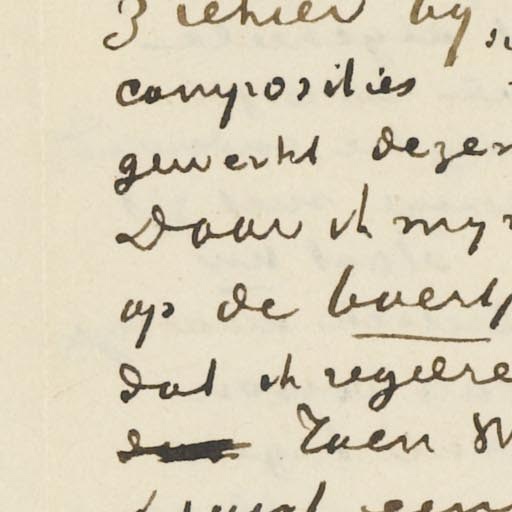 Ziehier by
composities
gewerkt dezen
Daar ik myn
op de boert
dat ik regeere
Toen